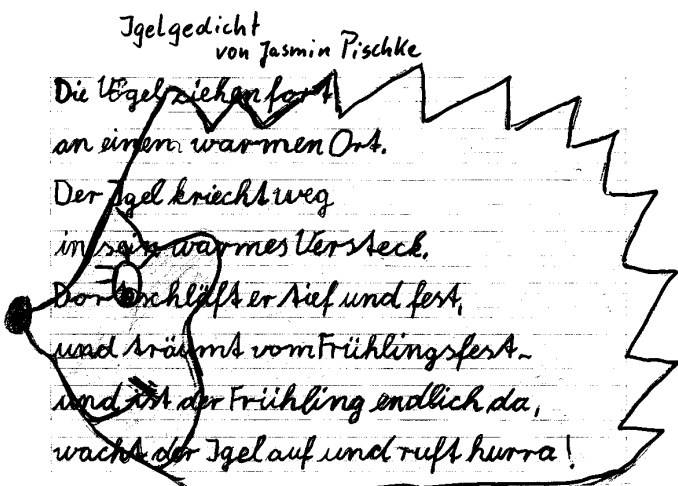 Igelgedicht
von Jasmin Pischke
Die Vögel ziehen fort
an einen warmen Ort.
Der Igel kriecht weg
in sein warmes Versteck.
Dort schläft er tief und fest,
und träumt vom Frühlingsfest.
und ist der Frühling endlich da,
wacht der Igel auf und ruft hurra!